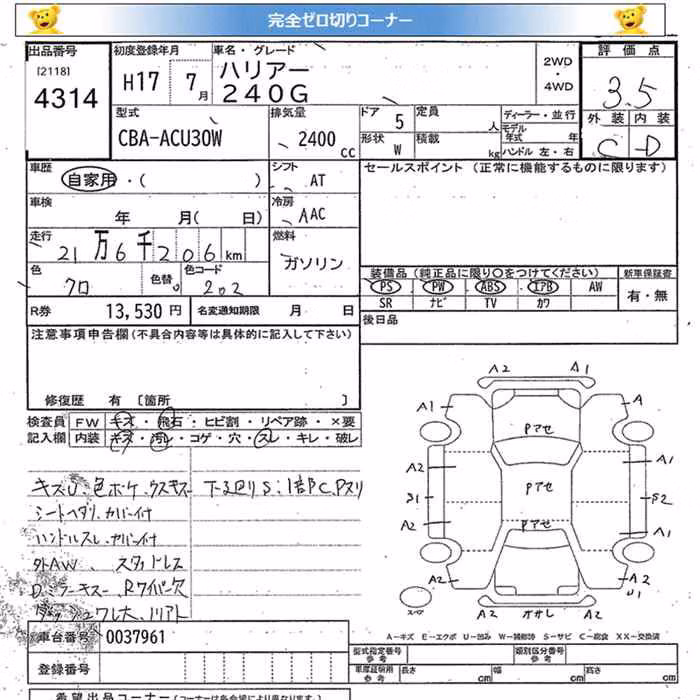 完全ゼロ切りコーナー
出品番号
[2118]
4314
初度登録年月
H17 7月
車名・グレード
ハリアー
240G
2WD
・
4WD
評価点
3.5
外装 内装
C D
型式
CBA-ACU30W
排気量
2400 cc
ドア 5
形状 W
定員 人
積載 kg
ディーラー・並行
モデル年式 年
ハンドル 左・右
車歴
自家用・( )
シフト
AT
セールスポイント (正常に機能するものに限ります)
車検
年 月( 日)
冷房
AAC
走行
21万6千206km
燃料
ガソリン
色
クロ
色替
色コード
202
装備品(純正品に限り○をつけてください)
新車保証書
PS PW ABS エアB AW
SR ナビ TV カワ
有・無
R券 13,530円
名変通知期限 月 日
後日品
注意事項申告欄(不具合内容等は具体的に記入して下さい)
修復歴 有 [箇所 ]
検査員
記入欄
FW キズ・飛石・ヒビ割・リペア跡・×要
内装 キズ・汚レ・コゲ・穴・スレ・キレ・破レ
キズU、色ボケ、ウスキズ
下廻りS:1部C、Pスリ
シートヘタリ、カバー付
ハンドルスレ、カバー付
外AW、スタッドレス
D.ミラーキズ、Rワイパー欠
ダッシュワレ大、リアト
A2 A1
A1 A
Pアセ
A2 A1
S1 Pアセ S2
A2 Pアセ A1
A2 A2
U1
スペア
A2 オサレ A2
A-キズ E-エクボ U-凹み W-補修跡 S-サビ C-腐食 XX-交換済
車台番号 0037961
登録番号
型式指定番号
参考
類別区分番号
参考
車庫証明用
参考
長さ cm
幅 cm
高さ cm
希望出品コーナー